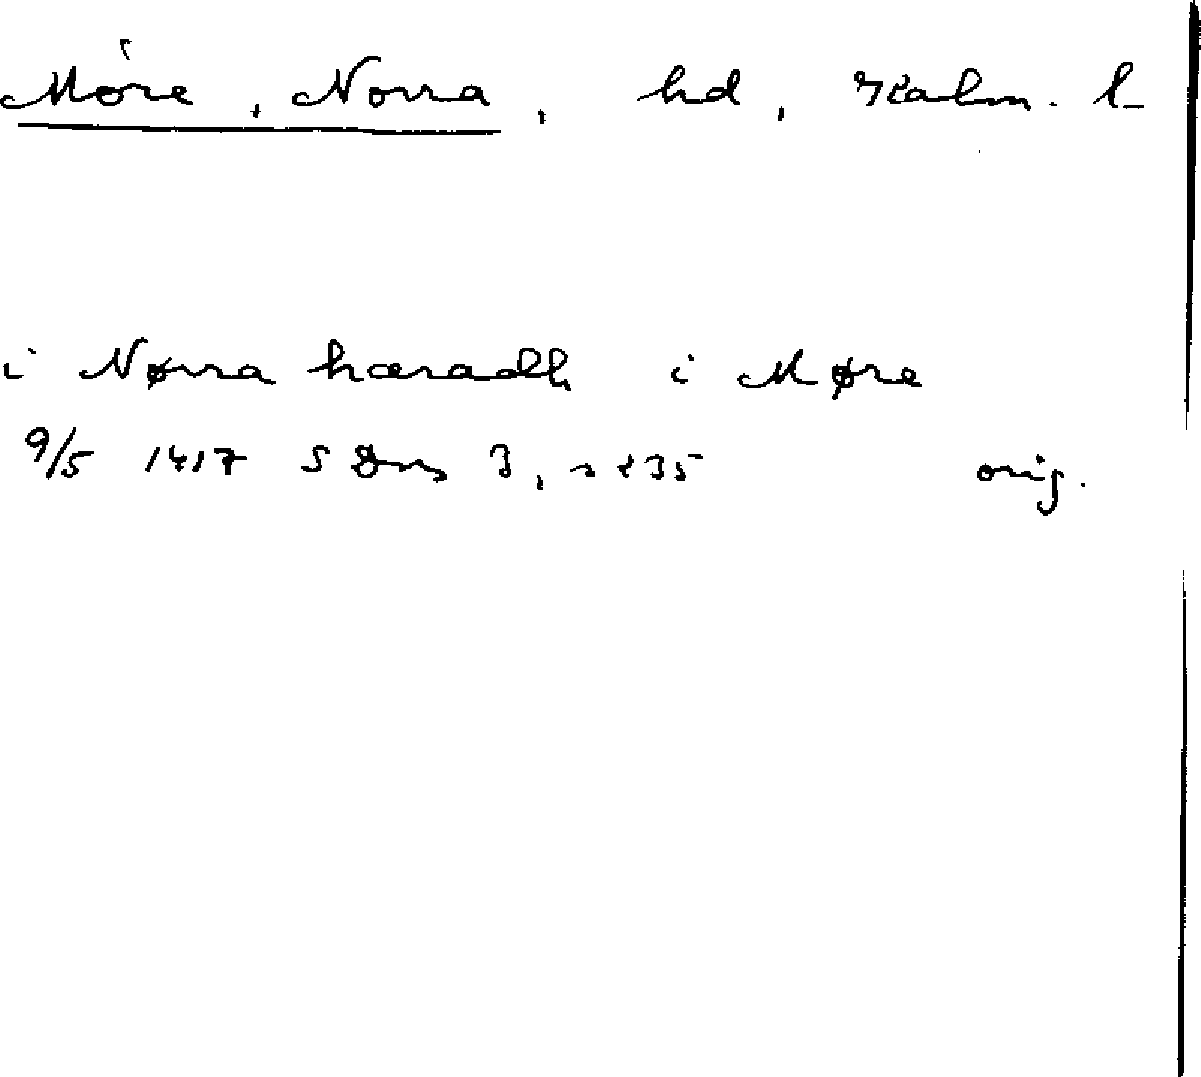 Möre, Norra, hd, Kalm. l
i Nørra hæradh i Møre
9/5 1417 SDns 3, s 235 orig.